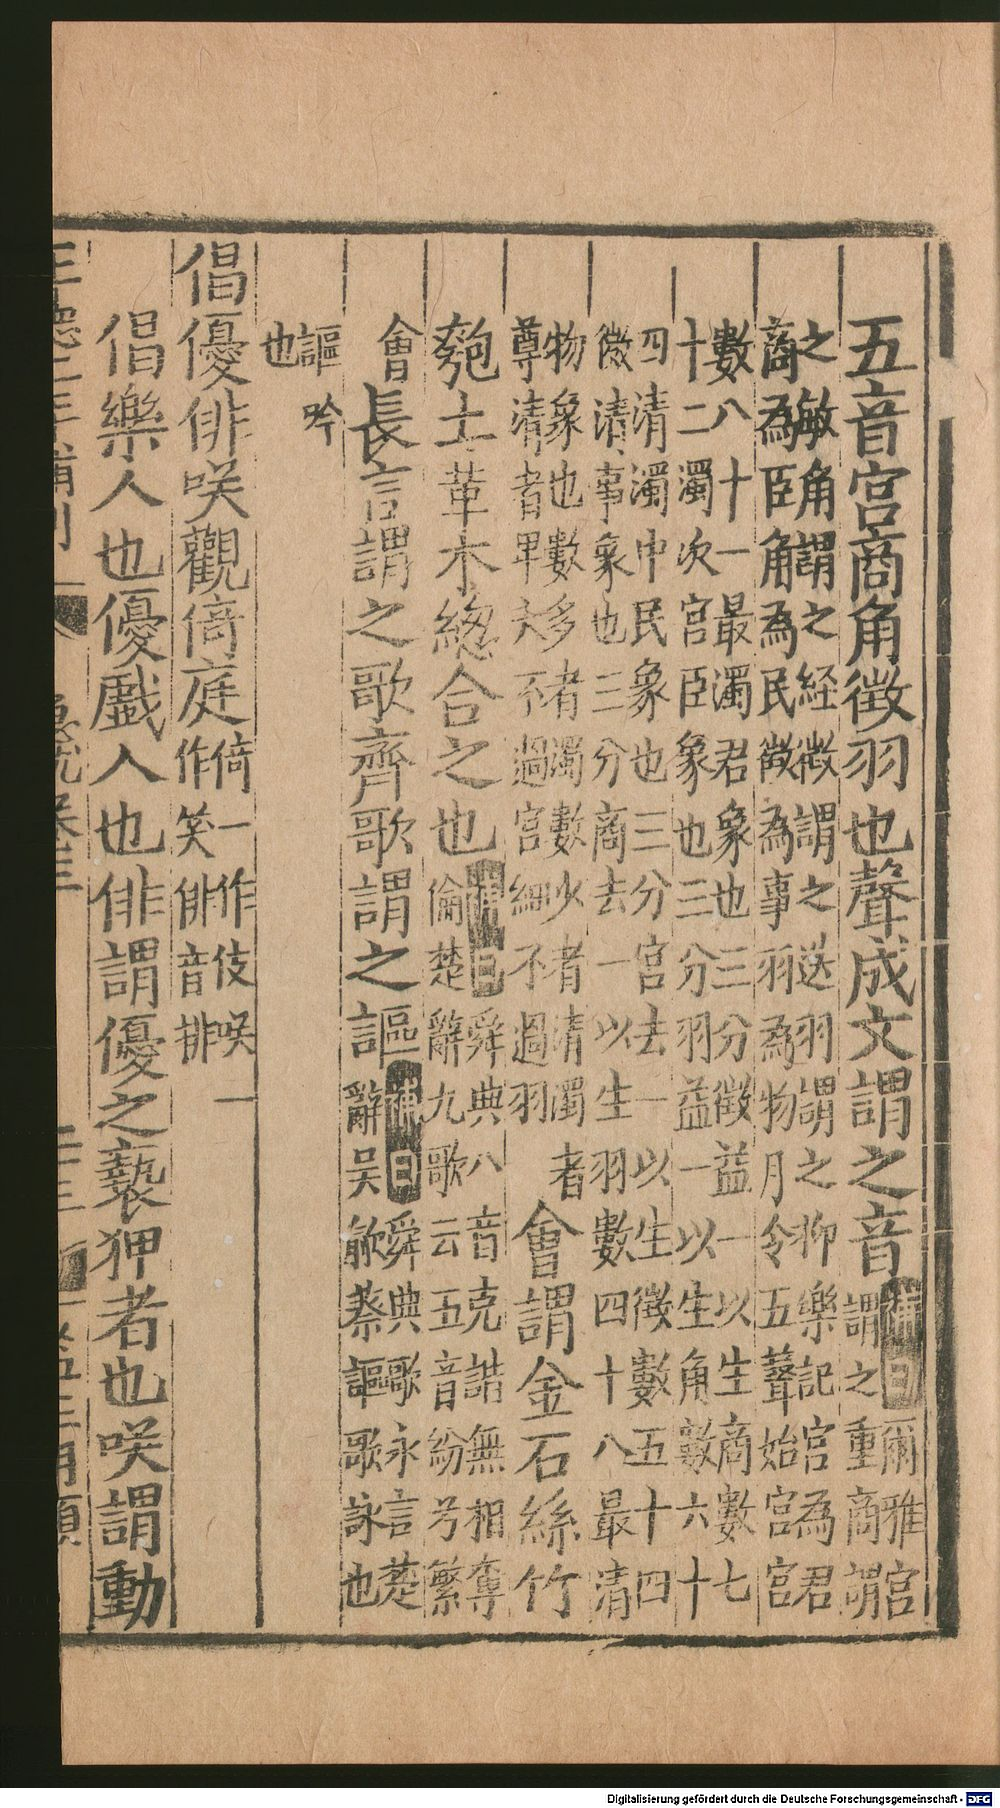 五音宮商角徵羽也聲成文謂之音補曰爾雅宮謂之重商謂
之敏角謂之経徵謂之迭羽謂之抑樂記宮為君商為臣角為民徵為事羽為物月令五聲始宮宮
數八十一最濁君象也三分徵益一以生商數七十二濁次宮臣象也三分羽益一以生角數六十
四清濁中民象也三分宮去一以生徵數五十四微清事象也三分商去一以生羽數四十八最清
物象也數多者濁數少者清濁者尊清者卑大不過宮細不過羽會謂金石絲竹
匏土革木緫合之也補曰舜典八音克諧無相奪倫楚辭九歌云五音紛兮繁
會長言謂之歌齊歌謂之謳補曰舜典歌永言楚辭吳歈蔡謳歌詠也
謳吟也
倡優俳咲觀倚庭倚一作伎咲一作笑俳音排
倡樂人也優戲人也俳謂優之褻狎者也咲謂動
急就卷三
Digitalisierung gefördert durch die Deutsche Forschungsgemeinschaft - DFG